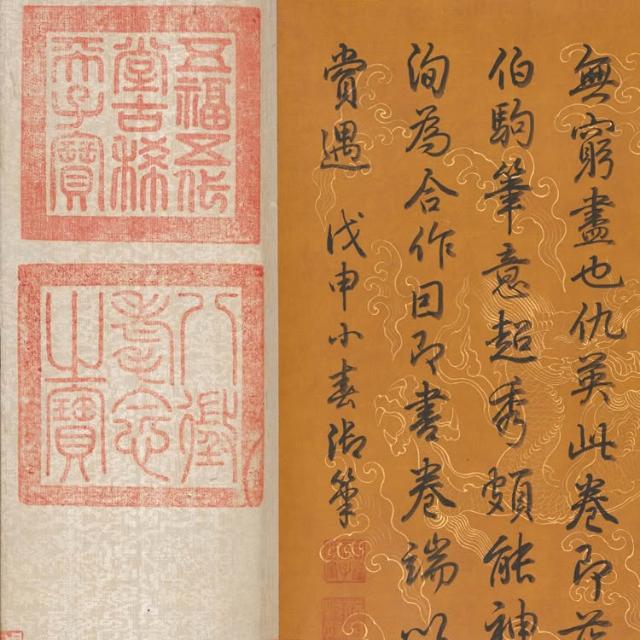 無窮盡也仇英此卷即莊
伯駒筆意超秀頗能神
洵為合作因即書卷端以
賞遇 戊申小春御筆
五福五代
堂古稀
天子寶
八徵
耄念
之寶